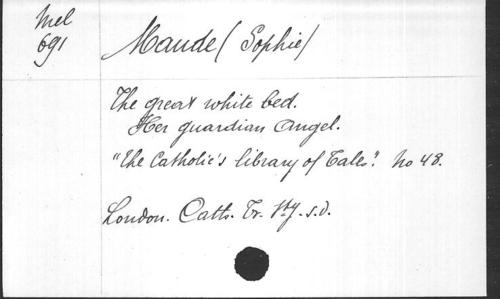 Mel
691
Maude (Sophie)
The great white bed.
Her guardian Angel.
"The Catholic's library of Tales". No 48.
London. Cath. Tr. Sty. s.d.